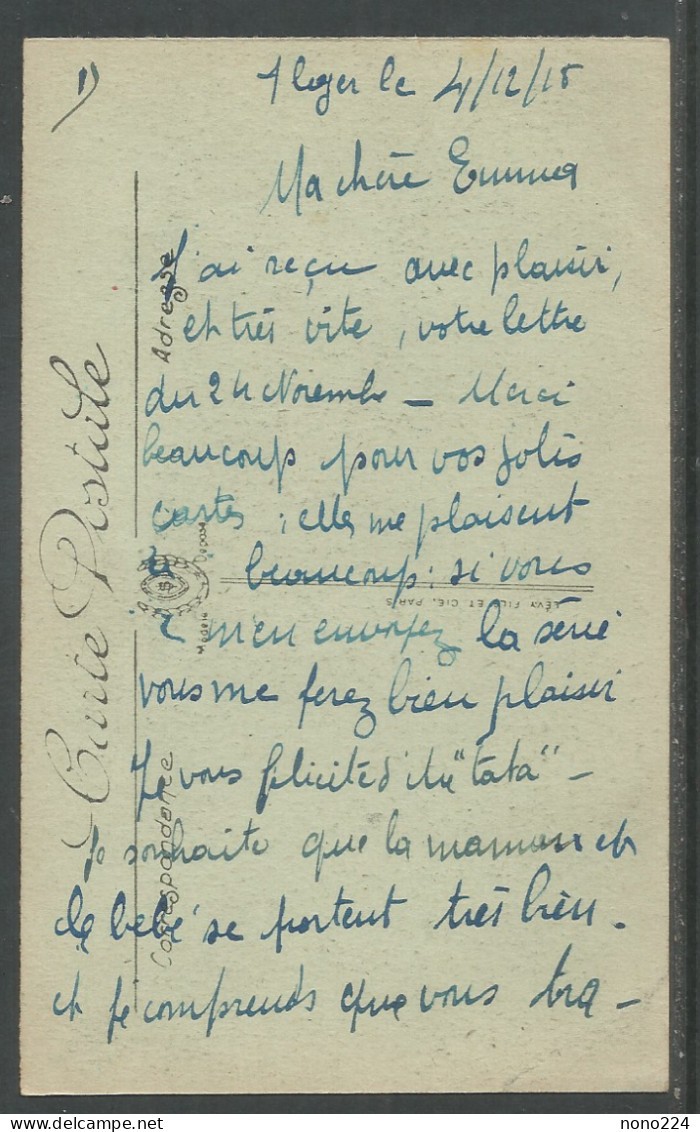 1)
Alger le 4/12/18
Ma chère Emma
J'ai reçu avec plaisir,
et très vite, votre lettre
du 24 Novembre — Merci
beaucoup pour vos jolis
cartes ; elles me plaisent
beaucoup : si vous
m'en envoyez la série
vous me ferez bien plaisir
Je vous félicite d'être "tata" —
Je souhaite que la maman et
le bébé se portent très bien.
et je comprends que vous tra —
Carte Postale
Correspondance
Adresse
Modèle Déposé
LÉVY FILS ET CIE, PARIS
www.delcampe.net
nono224